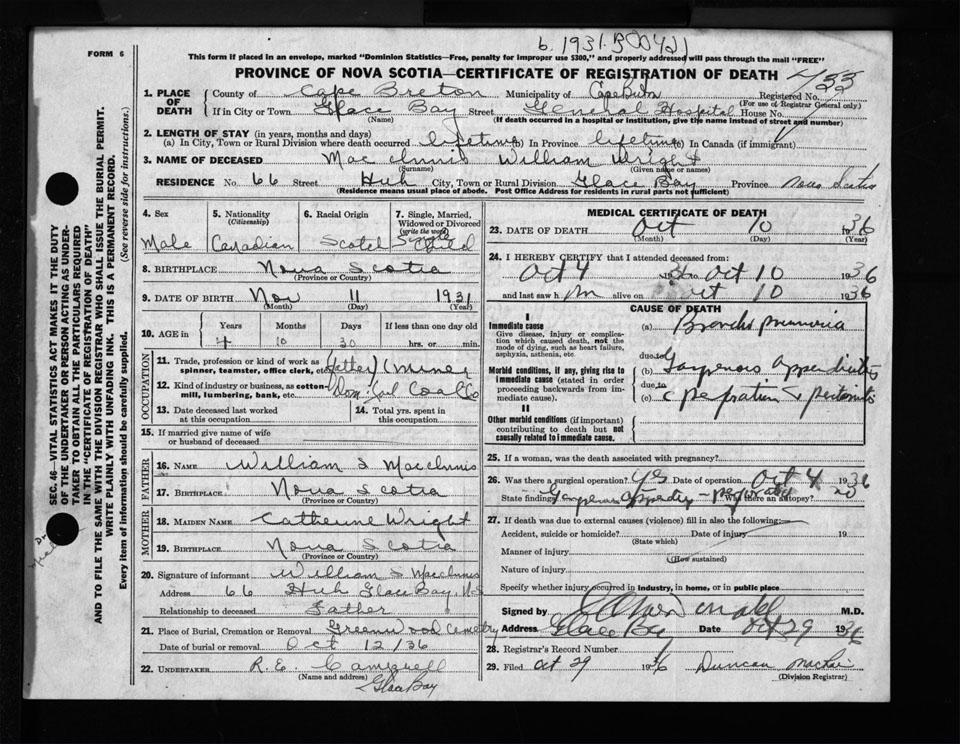 b. 1931.
FORM 6
This form if placed in an envelope, marked "Dominion Statistics—Free, penalty for improper use $300," and properly addressed will pass through the mail "FREE"
PROVINCE OF NOVA SCOTIA—CERTIFICATE OF REGISTRATION OF DEATH 433
SEC. 46—VITAL STATISTICS ACT MAKES IT THE DUTY
OF THE UNDERTAKER OR PERSON ACTING AS UNDER-
TAKER TO OBTAIN ALL THE PARTICULARS REQUIRED
IN THE "CERTIFICATE OF REGISTRATION OF DEATH"
AND TO FILE THE SAME WITH THE DIVISION REGISTRAR WHO SHALL ISSUE THE BURIAL PERMIT.
WRITE PLAINLY WITH UNFADING INK. THIS IS A PERMANENT RECORD.
Every item of information should be carefully supplied. (See reverse side for instructions.)
1. PLACE OF DEATH County of Cape Breton Municipality of Cape Breton Registered No.
(For use of Registrar General only)
If in City or Town Glace Bay Street General Hospital House No.
(Name) (If death occurred in a hospital or institution, give the name instead of street and number)
2. LENGTH OF STAY (in years, months and days)
(a) In City, Town or Rural Division where death occurred lifetime In Province lifetime In Canada (if immigrant)
3. NAME OF DECEASED MacInnis William Wright
(Surname) (Given name or names)
RESIDENCE No. 66 Street City, Town or Rural Division Glace Bay Province Nova Scotia
(Residence means usual place of abode. Post Office Address for residents in rural parts not sufficient)
4. Sex Male
5. Nationality (Citizenship) Canadian
6. Racial Origin Scotch
7. Single, Married, Widowed or Divorced (write the word) Single Child
8. BIRTHPLACE Nova Scotia
(Province or Country)
9. DATE OF BIRTH Nov 11 1931
(Month) (Day) (Year)
10. AGE in Years Months Days If less than one day old
4 10 30 hrs. or min.
OCCUPATION
11. Trade, profession or kind of work as spinner, teamster, office clerk, etc. (Father) (Miner)
12. Kind of industry or business, as cotton-mill, lumbering, bank, etc. Dom Coal Co
13. Date deceased last worked at this occupation
14. Total yrs. spent in this occupation
15. If married give name of wife or husband of deceased
FATHER
16. NAME William S MacInnis
17. BIRTHPLACE Nova Scotia
(Province or Country)
MOTHER
18. MAIDEN NAME Catherine Wright
19. BIRTHPLACE Nova Scotia
(Province or Country)
20. Signature of informant William S MacInnis
Address 66 Glace Bay, N.S
Relationship to deceased Father
21. Place of Burial, Cremation or Removal Greenwood Cemetery
Date of burial or removal Oct 12/36
22. UNDERTAKER R. E. Campbell
(Name and address)
Glace Bay
MEDICAL CERTIFICATE OF DEATH
23. DATE OF DEATH Oct 10 1936
(Month) (Day) (Year)
24. I HEREBY CERTIFY that I attended deceased from:
Oct 4 1936 to Oct 10 1936
and last saw him alive on Oct 10 1936
CAUSE OF DEATH
I
Immediate cause
Give disease, injury or complication which caused death, not the mode of dying, such as heart failure, asphyxia, asthenia, etc.
(a) Broncho pneumonia
due to
Morbid conditions, if any, giving rise to immediate cause (stated in order proceeding backwards from immediate cause).
(b) Gangrenous appendicitis
due to
(c) c perforation & peritonitis
II
Other morbid conditions (if important) contributing to death but not causally related to immediate cause.
25. If a woman, was the death associated with pregnancy?
26. Was there a surgical operation? Yes Date of operation Oct 4 1936
State findings Gangrenous Appendix - perforated Was there an autopsy? no
27. If death was due to external causes (violence) fill in also the following:
Accident, suicide or homicide? Date of injury 19
(State which)
Manner of injury
(How sustained)
Nature of injury
Specify whether injury occurred in industry, in home, or in public place
Signed by M.D.
Address Glace Bay Date Oct 29 1936
28. Registrar's Record Number
29. Filed Oct 29 1936 Duncan
(Division Registrar)